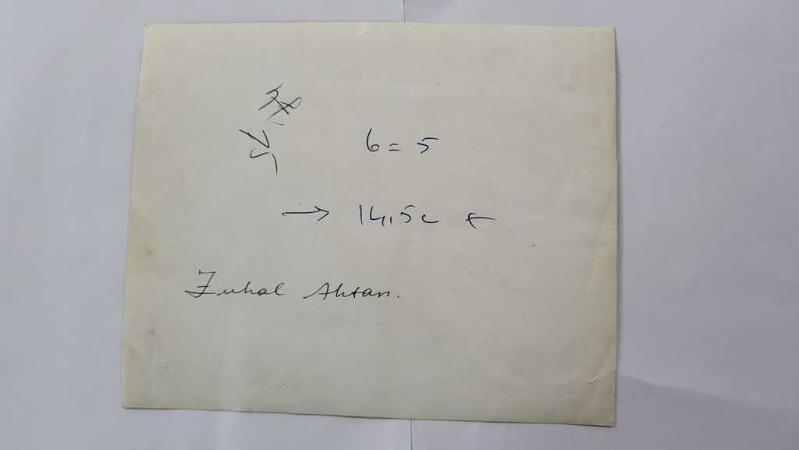 6 = 5
→ 14,5c ←
Zuhal Aktan.